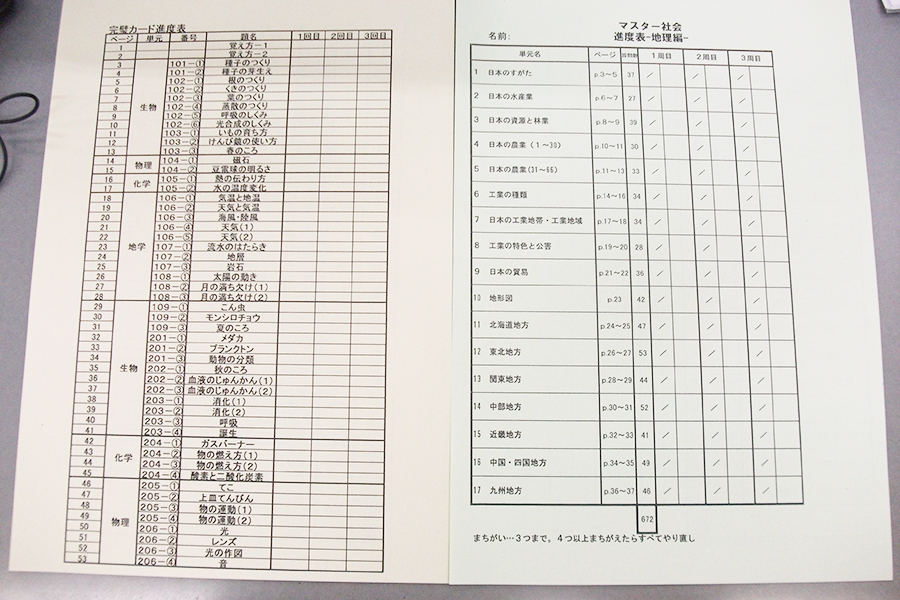 完璧カード進度表
ページ 単元 番号 題名 1回目 2回目 3回目
1 覚え方－1
2 覚え方－2
3 101－① 種子のつくり
4 101－② 種子の芽生え
5 102－① 根のつくり
6 102－② くきのつくり
7 102－③ 葉のつくり
8 生物 102－④ 蒸散のつくり
9 102－⑤ 呼吸のしくみ
10 102－⑥ 光合成のしくみ
11 103－① いもの育ち方
12 103－② けんび鏡の使い方
13 103－③ 春のころ
14 物理 104－① 磁石
15 104－② 豆電球の明るさ
16 化学 105－① 熱の伝わり方
17 105－② 水の温度変化
18 106－① 気温と地温
19 106－② 天気と気温
20 106－③ 海風・陸風
21 106－④ 天気(1)
22 106－⑤ 天気(2)
23 地学 107－① 流水のはたらき
24 107－② 地層
25 107－③ 岩石
26 108－① 太陽の動き
27 108－② 月の満ち欠け(1)
28 108－③ 月の満ち欠け(2)
29 109－① こん虫
30 109－② モンシロチョウ
31 109－③ 夏のころ
32 201－① メダカ
33 201－② プランクトン
34 201－③ 動物の分類
35 生物 202－① 秋のころ
36 202－② 血液のじゅんかん(1)
37 202－③ 血液のじゅんかん(2)
38 203－① 消化(1)
39 203－② 消化(2)
40 203－③ 呼吸
41 203－④ 誕生
42 204－① ガスバーナー
43 化学 204－② 物の燃え方(1)
44 204－③ 物の燃え方(2)
45 204－④ 酸素と二酸化炭素
46 205－① てこ
47 205－② 上皿てんびん
48 205－③ 物の運動(1)
49 物理 205－④ 物の運動(2)
50 206－① 光
51 206－② レンズ
52 206－③ 光の作図
53 206－④ 音
マスター社会
進度表-地理編-
名前:
単元名 ページ 1周目 2周目 3周目
1 日本のすがた p.3～5 37 ／ ／ ／
2 日本の水産業 p.6～7 27 ／ ／ ／
3 日本の資源と林業 p.8～9 39 ／ ／ ／
4 日本の農業(1～30) p.10～11 30 ／ ／ ／
5 日本の農業(31～66) p.11～13 33 ／ ／ ／
6 工業の種類 p.14～16 34 ／ ／ ／
7 日本の工業地帯・工業地域 p.17～18 34 ／ ／ ／
8 工業の特色と公害 p.19～20 28 ／ ／ ／
9 日本の貿易 p.21～22 36 ／ ／ ／
10 地形図 p.23 42 ／ ／ ／
11 北海道地方 p.24～25 47 ／ ／ ／
12 東北地方 p.26～27 53 ／ ／ ／
13 関東地方 p.28～29 44 ／ ／ ／
14 中部地方 p.30～31 52 ／ ／ ／
15 近畿地方 p.32～33 41 ／ ／ ／
16 中国・四国地方 p.34～35 49 ／ ／ ／
17 九州地方 p.36～37 46 ／ ／ ／
672
まちがい…3つまで。4つ以上まちがえたらすべてやり直し